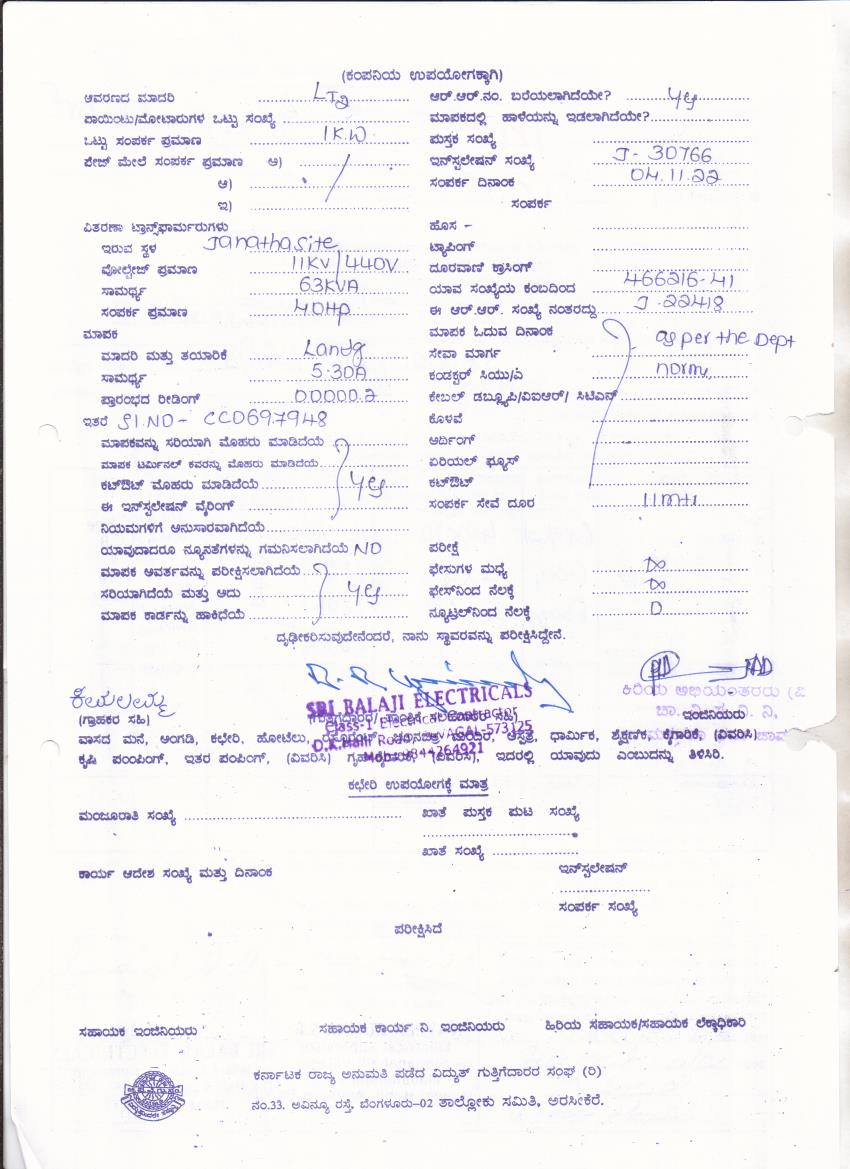 (ಕಂಪನಿಯ ಉಪಯೋಗಕ್ಕಾಗಿ)
ಆವರಣದ ಮಾದರಿ LT2
ಪಾಯಿಂಟು/ಮೋಟಾರುಗಳ ಒಟ್ಟು ಸಂಖ್ಯೆ
ಒಟ್ಟು ಸಂಪರ್ಕ ಪ್ರಮಾಣ 1KW
ಪೇಜ್ ಮೇಲೆ ಸಂಪರ್ಕ ಪ್ರಮಾಣ ಅ)
ಆ)
ಇ)
ವಿತರಣಾ ಟ್ರಾನ್ಸ್‌ಫಾರ್ಮರುಗಳು
ಇರುವ ಸ್ಥಳ Janatha site
ವೋಲ್ಟೇಜ್ ಪ್ರಮಾಣ 11KV/440V
ಸಾಮರ್ಥ್ಯ 63KVA
ಸಂಪರ್ಕ ಪ್ರಮಾಣ 40HP
ಮಾಪಕ
ಮಾದರಿ ಮತ್ತು ತಯಾರಿಕೆ Landg
ಸಾಮರ್ಥ್ಯ 5-30A
ಪ್ರಾರಂಭದ ರೀಡಿಂಗ್ 00000.2
ಇತರೆ Sl.NO- CCD697948
ಮಾಪಕವನ್ನು ಸರಿಯಾಗಿ ಮೊಹರು ಮಾಡಿದೆಯೆ
ಮಾಪಕ ಟರ್ಮಿನಲ್ ಕವರನ್ನು ಮೊಹರು ಮಾಡಿದೆಯೆ
ಕಟ್‌ಔಟ್ ಮೊಹರು ಮಾಡಿದೆಯೆ yes
ಈ ಇನ್‌ಸ್ಟಲೇಷನ್ ವೈರಿಂಗ್
ನಿಯಮಗಳಿಗೆ ಅನುಸಾರವಾಗಿದೆಯೆ
ಯಾವುದಾದರೂ ನ್ಯೂನತೆಗಳನ್ನು ಗಮನಿಸಲಾಗಿದೆಯೆ NO
ಮಾಪಕ ಅವರ್ತವನ್ನು ಪರೀಕ್ಷಿಸಲಾಗಿದೆಯೆ
ಸರಿಯಾಗಿದೆಯೆ ಮತ್ತು ಅದು yes
ಮಾಪಕ ಕಾರ್ಡನ್ನು ಹಾಕಿದೆಯೆ
ಆರ್.ಆರ್.ನಂ. ಬರೆಯಲಾಗಿದೆಯೇ? yes
ಮಾಪಕದಲ್ಲಿ ಹಾಳೆಯನ್ನು ಇಡಲಾಗಿದೆಯೇ?
ಪುಸ್ತಕ ಸಂಖ್ಯೆ
ಇನ್‌ಸ್ಟಲೇಷನ್ ಸಂಖ್ಯೆ J-30766
ಸಂಪರ್ಕ ದಿನಾಂಕ 04.11.22
ಸಂಪರ್ಕ
ಹೊಸ -
ಟ್ಯಾಪಿಂಗ್
ದೂರವಾಣಿ ಕ್ರಾಸಿಂಗ್
ಯಾವ ಸಂಖ್ಯೆಯ ಕಂಬದಿಂದ 466216-41
ಈ ಆರ್.ಆರ್. ಸಂಖ್ಯೆ ನಂತರದ್ದು J-22418
ಮಾಪಕ ಓದುವ ದಿನಾಂಕ as per the Dept
ಸೇವಾ ಮಾರ್ಗ
ಕಂಡಕ್ಟರ್ ಸಿಯು/ಎ norms
ಕೇಬಲ್ ಡಬ್ಲ್ಯೂಪಿ/ವಿಐಆರ್/ ಸಿಟಿಎಸ್
ಕೊಳವೆ
ಅರ್ಥಿಂಗ್
ಏರಿಯಲ್ ಫ್ಯೂಸ್
ಕಟ್‌ಔಟ್
ಸಂಪರ್ಕ ಸೇವೆ ದೂರ 11mtr
ಪರೀಕ್ಷೆ
ಫೇಸುಗಳ ಮಧ್ಯೆ ∞
ಫೇಸ್‌ನಿಂದ ನೆಲಕ್ಕೆ ∞
ನ್ಯೂಟ್ರಲ್‌ನಿಂದ ನೆಲಕ್ಕೆ 0
ದೃಢೀಕರಿಸುವುದೇನೆಂದರೆ, ನಾನು ಸ್ಥಾವರವನ್ನು ಪರೀಕ್ಷಿಸಿದ್ದೇನೆ.
SRI BALAJI ELECTRICALS
Class-1 Electrical Contractor
D.K.Halli Road, JAVAGAL-573125
(ಗ್ರಾಹಕರ ಸಹಿ)
ಇಂಜಿನಿಯರು
ವಾಸದ ಮನೆ, ಅಂಗಡಿ, ಕಛೇರಿ, ಹೋಟೆಲು, ಆಸ್ಪತ್ರೆ, ಧಾರ್ಮಿಕ, ಶೈಕ್ಷಣಿಕ, ಕೈಗಾರಿಕೆ, (ವಿವರಿಸಿ)
ಕೃಷಿ ಪಂಪಿಂಗ್, ಇತರ ಪಂಪಿಂಗ್, (ವಿವರಿಸಿ) (ವಿವರಿಸಿ), ಇದರಲ್ಲಿ ಯಾವುದು ಎಂಬುದನ್ನು ತಿಳಿಸಿರಿ.
ಕಛೇರಿ ಉಪಯೋಗಕ್ಕೆ ಮಾತ್ರ
ಮಂಜೂರಾತಿ ಸಂಖ್ಯೆ
ಖಾತೆ ಪುಸ್ತಕ ಪುಟ ಸಂಖ್ಯೆ
ಖಾತೆ ಸಂಖ್ಯೆ
ಕಾರ್ಯ ಆದೇಶ ಸಂಖ್ಯೆ ಮತ್ತು ದಿನಾಂಕ
ಇನ್‌ಸ್ಟಲೇಷನ್
ಸಂಪರ್ಕ ಸಂಖ್ಯೆ
ಪರೀಕ್ಷಿಸಿದೆ
ಸಹಾಯಕ ಇಂಜಿನಿಯರು
ಸಹಾಯಕ ಕಾರ್ಯ ನಿ. ಇಂಜಿನಿಯರು
ಹಿರಿಯ ಸಹಾಯಕ/ಸಹಾಯಕ ಲೆಕ್ಕಾಧಿಕಾರಿ
ಕರ್ನಾಟಕ ರಾಜ್ಯ ಅನುಮತಿ ಪಡೆದ ವಿದ್ಯುತ್ ಗುತ್ತಿಗೆದಾರರ ಸಂಘ (ರಿ)
ನಂ.33. ಅವಿನ್ಯೂ ರಸ್ತೆ, ಬೆಂಗಳೂರು-02 ತಾಲ್ಲೋಕು ಸಮಿತಿ, ಅರಸೀಕೆರೆ.